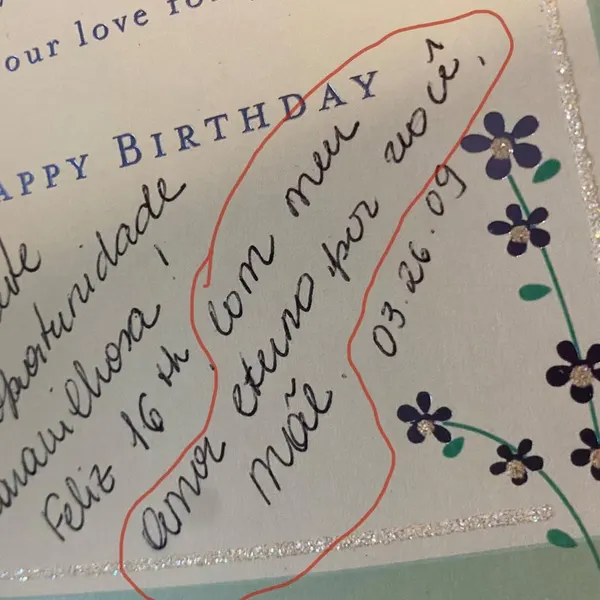 our love fo
APPY BIRTHDAY
oportunidade
maravilhosa!
Feliz 16th. Com meu
amor eterno por você,
mãe.
03.26.09